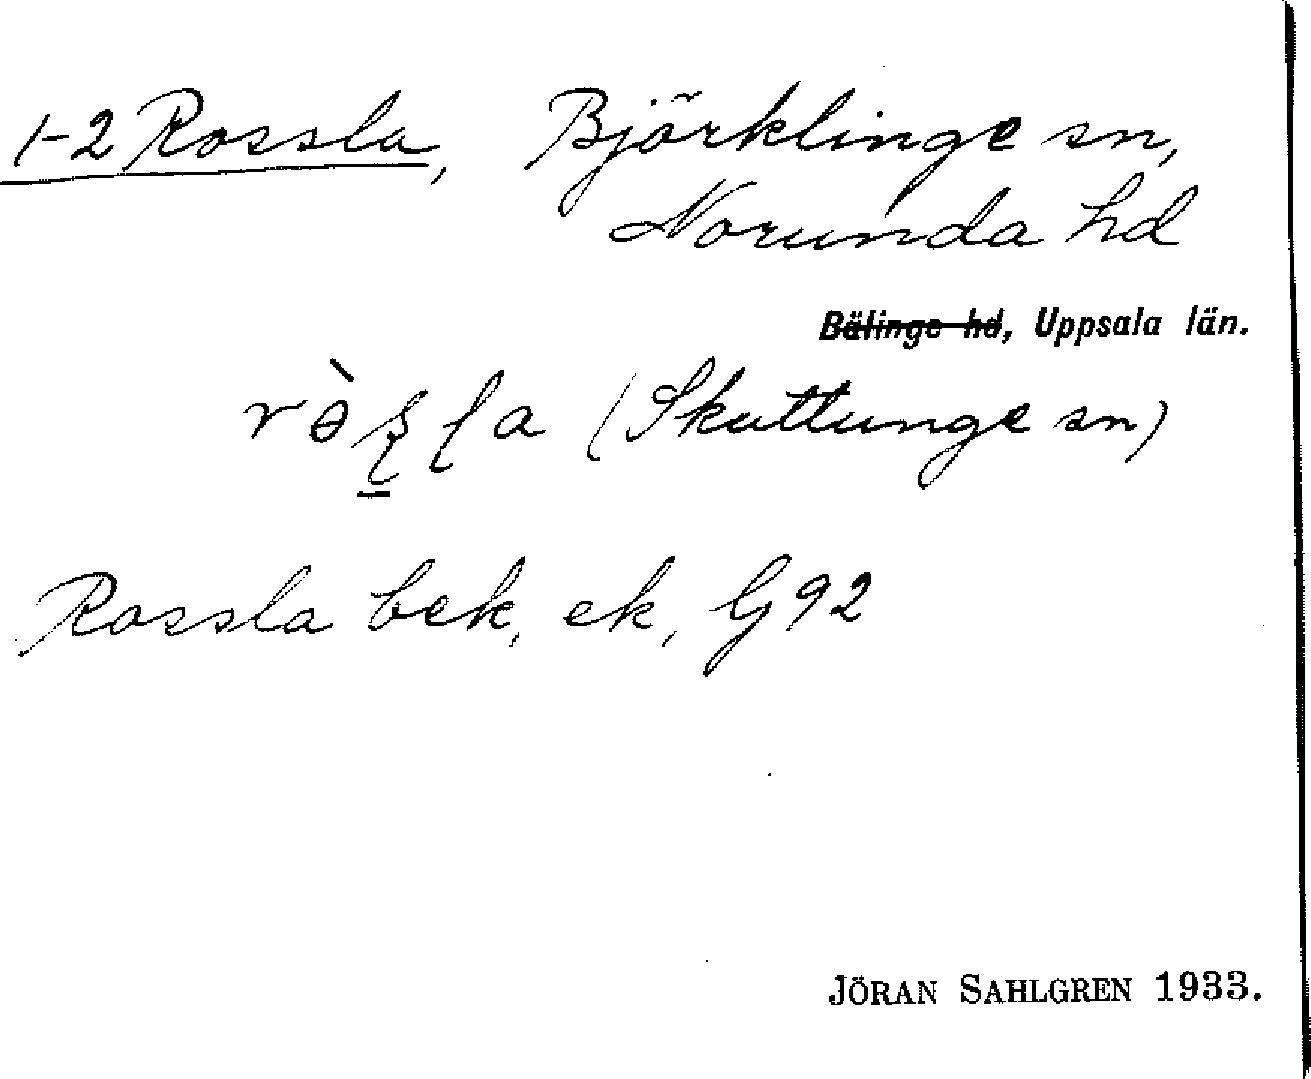 1-2 Rossla, Björklinge sn,
Norunda hd
Bälinge hd, Uppsala län.
(Skuttunge sn)
Rossla bek, ek, G 92
JÖRAN SAHLGREN 1933.